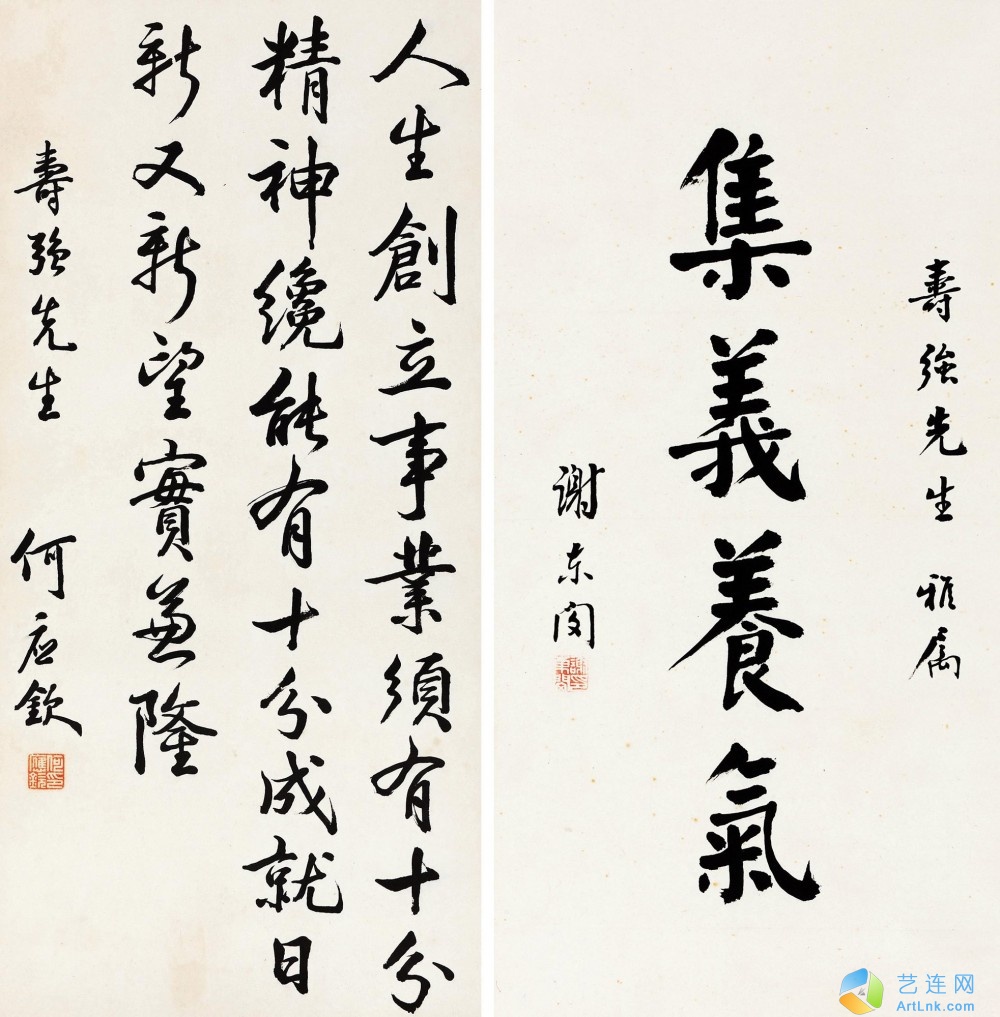 人生創立事業須有十分
精神纔能有十分成就日
新又新望實兼隆
壽强先生
何应欽
何應欽印
壽强先生 雅属
集義養氣
谢东闵
艺连网
ArtLnk.com